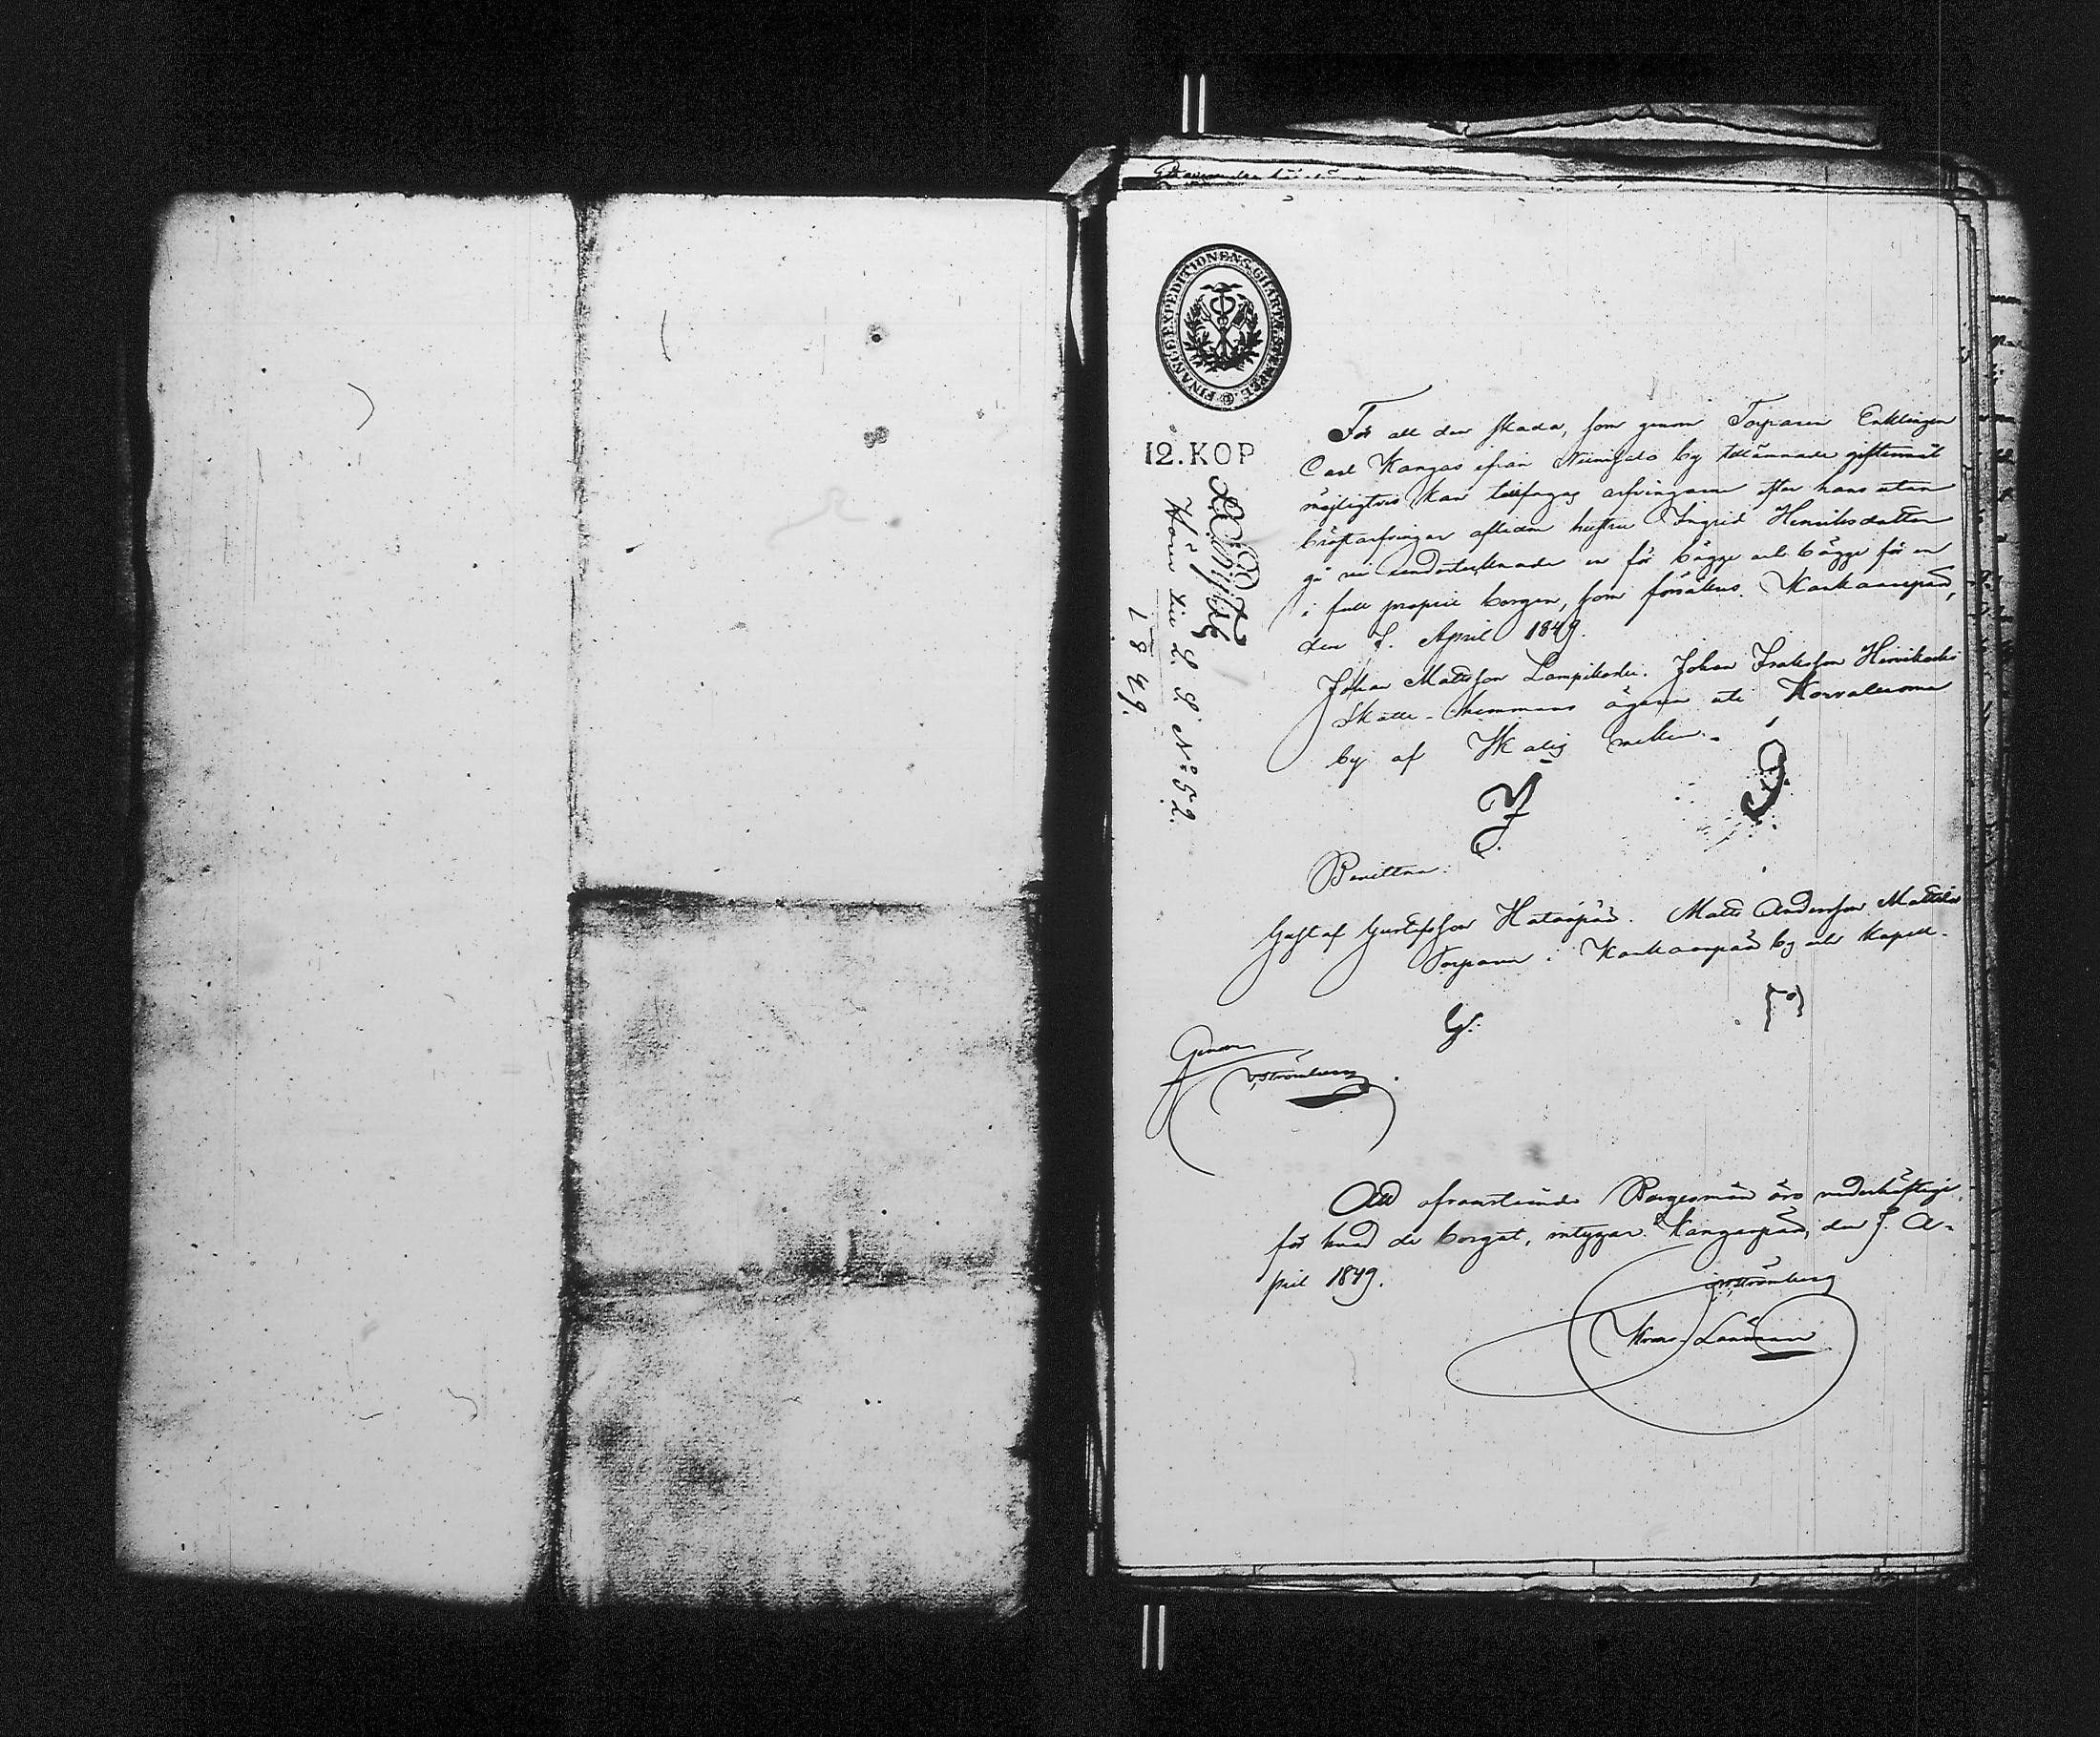 FINANCE EXPEDITIONENS CHARTÆ STEMPEL
12. KOP
Hörer till L. L. № 52.
1849.
För all den skada, som genom Torparen Enklingen
Carl Kangas ifrån Niinisalo by tillämnade giftermål
möjligtvis kan tillfogas arfvingarne efter hans utan
bröstarfvingar aflidna hustru Ingrid Henriksdotter
gå vi undertecknade en för bägge och bägge för en
i full proprie borgen, som försäkras. Kankaanpää,
den 7. April 1849.
Johan Mattsson Lampikoski. Johan Isaksson Heinikoski
Skatte-hemmans ägare uti Korvaluoma
by af
Bevittna:
Gustaf Gustafsson Hataspää. Matts Andersson Mattila
Torpare i Kankaanpää by och Kapell.
G.
Genom
Strömberg
Att ofvanstående Borgesmän äro vederhäftige
för hvad de borgat, intygar. Kangaspää, den 7. A-
pril 1849.
Strömberg
Krono-Länsman